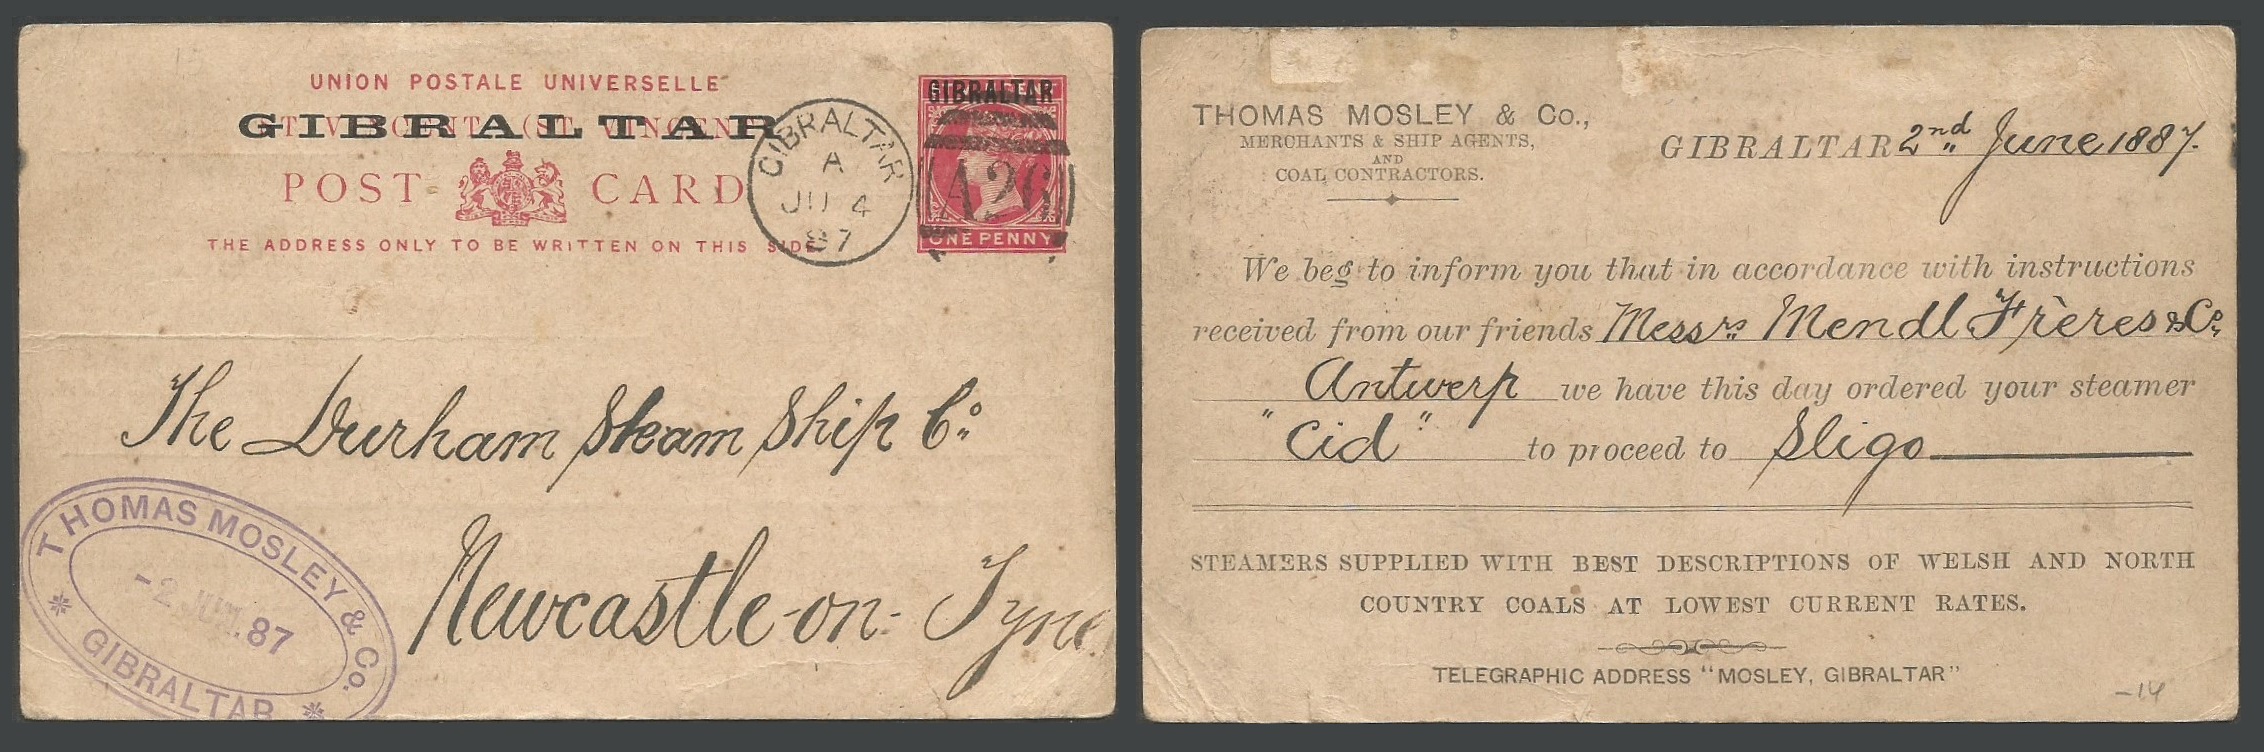 UNION POSTALE UNIVERSELLE
GIBRALTAR
POST CARD
THE ADDRESS ONLY TO BE WRITTEN ON THIS SIDE
GIBRALTAR
A
JU 4
87
GIBRALTAR
A26
ONE PENNY
The Durham Steam Ship Co.
Newcastle-on-Tyne
THOMAS MOSLEY & Co.
-2 JUN. 87
GIBRALTAR
THOMAS MOSLEY & Co.,
MERCHANTS & SHIP AGENTS,
AND
COAL CONTRACTORS.
GIBRALTAR 2nd June 1887.
We beg to inform you that in accordance with instructions
received from our friends Messrs Mendl Frères & Co.
Antwerp we have this day ordered your steamer
"Cid" to proceed to Sligo
STEAMERS SUPPLIED WITH BEST DESCRIPTIONS OF WELSH AND NORTH
COUNTRY COALS AT LOWEST CURRENT RATES.
TELEGRAPHIC ADDRESS "MOSLEY, GIBRALTAR"
-14